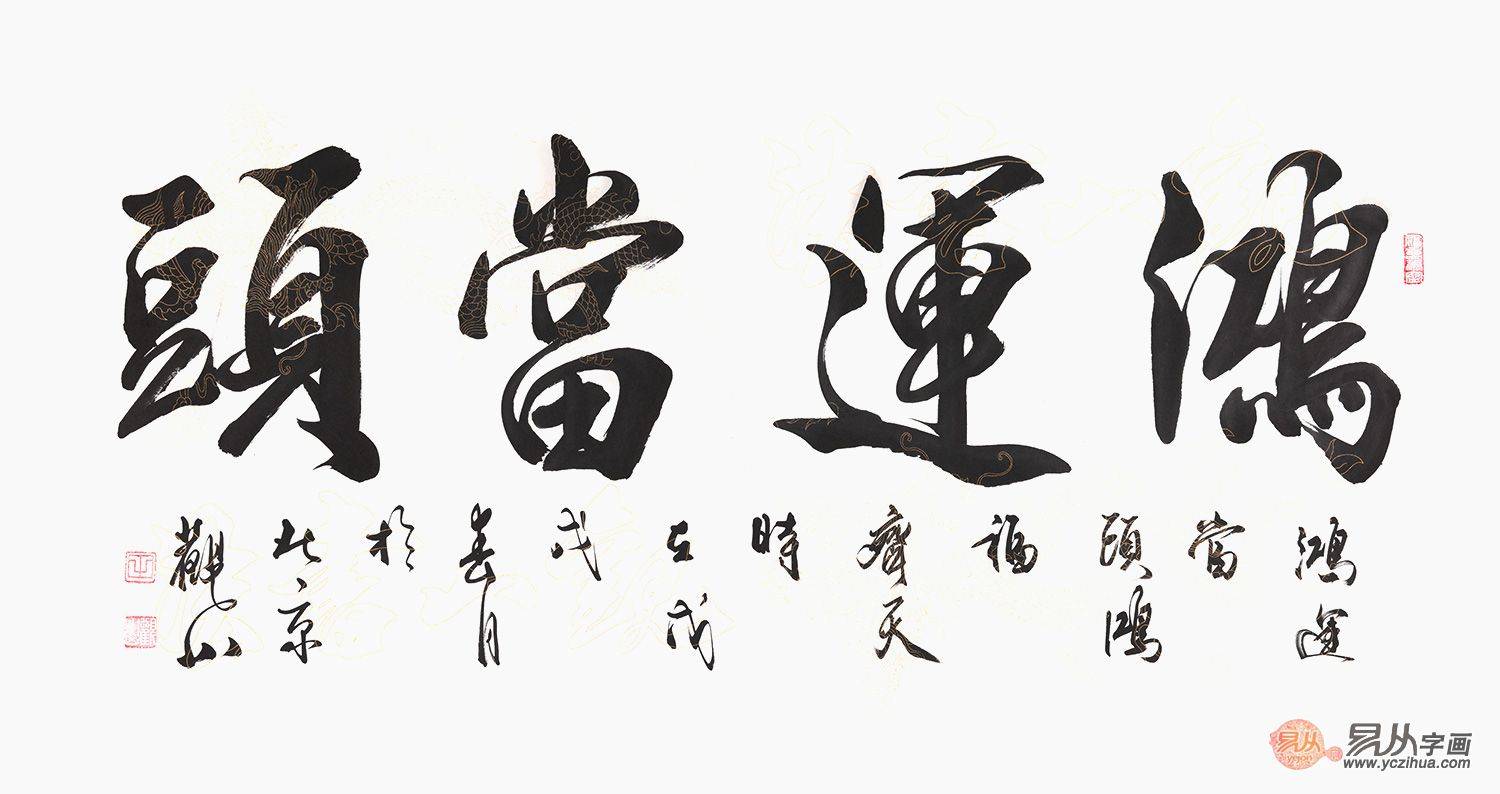 鴻運當頭
鴻運
當
頭鴻
福
齊天
時
在戊
戌
春月
於
北京
觀山
易从
易从字画
www.yczihua.com